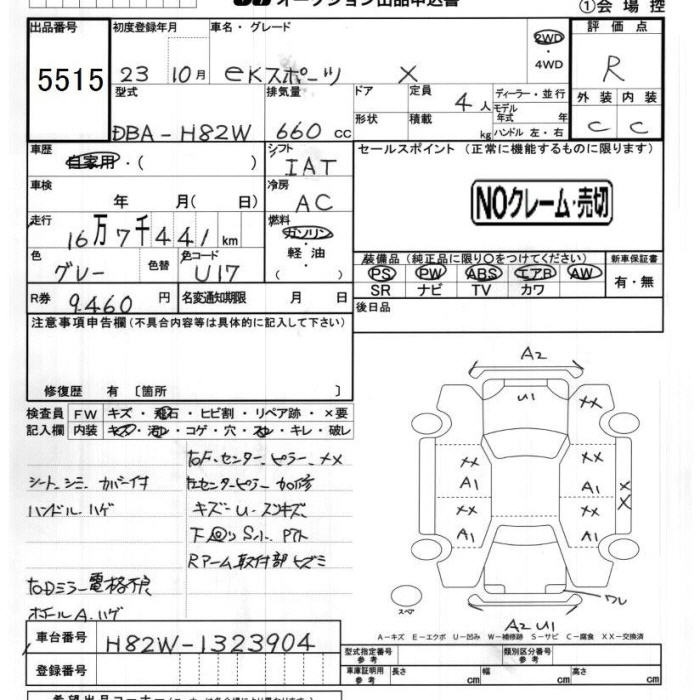 オークション出品申込書
①会場控
出品番号 初度登録年月 車名・グレード 評価点
5515 23 10月 eKスポーツ X 2WD・4WD R
型式 排気量 ドア 定員 4人 ディーラー・並行 外装 内装
形状 積載 kg モデル年式 年 ハンドル 左・右
DBA-H82W 660cc C C
車歴 自家用・( ) シフト IAT セールスポイント(正常に機能するものに限ります)
車検 年 月( 日) 冷房 AC NOクレーム・売切
走行 16万7千441km 燃料 ガソリン・軽油( )
色 グレー 色替 色コード U17 装備品(純正品に限り○をつけてください) 新車保証書
PS PW ABS エアB AW 有・無
SR ナビ TV カワ
R券 9.460円 名変通知期限 月 日 後日品
注意事項申告欄(不具合内容等は具体的に記入して下さい)
修復歴 有〔箇所 〕
検査員 FW キズ・飛石・ヒビ割・リペア跡・×要
記入欄 内装 キズ・汚れ・コゲ・穴・スレ・キレ・破レ
右F.センターピラー XX
シート.シミ カバー付 左センターピラー 加修
ハンドル.ハゲ キズ-U-スリキズ
下回り
Rアーム取付部
右Dミラー電格不良
ホイールA.ハゲ
A2
U1 XX
XX XX
A1 A1 XX
XX XX
A1 A1
ワレ
スペア
A2 U1
A-キズ E-エクボ U-凹み W-補修跡 S-サビ C-腐食 XX-交換済
車台番号 H82W-1323904 型式指定番号 参考 類別区分番号 参考
登録番号 車庫証明用 参考 長さ cm 幅 cm 高さ cm
希望出品コーナー